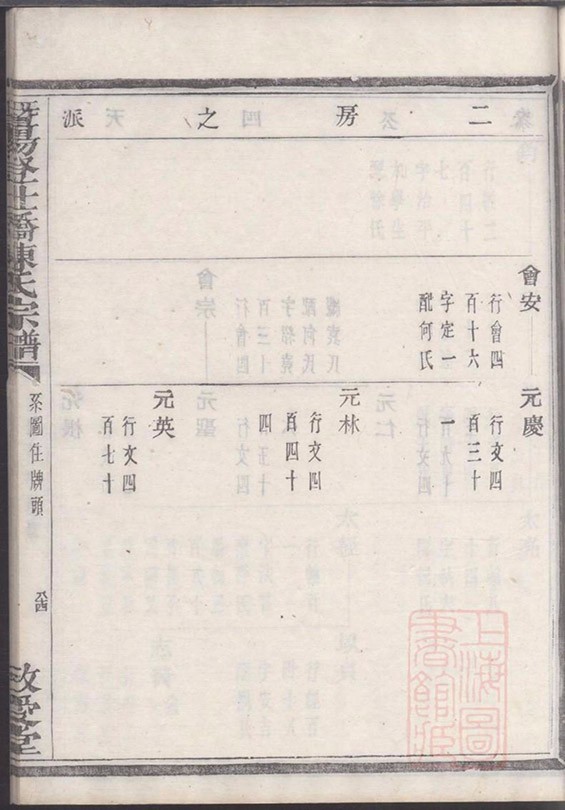 二房之派
會安
行會四
百十六
字定一
配何氏
元慶
行文四
百三十
一
元林
行文四
百四十
四
元英
行文四
百七十
暨陽登仕橋陳氏宗譜
系圖住牌頭
敬愛堂
上海圖
書館藏